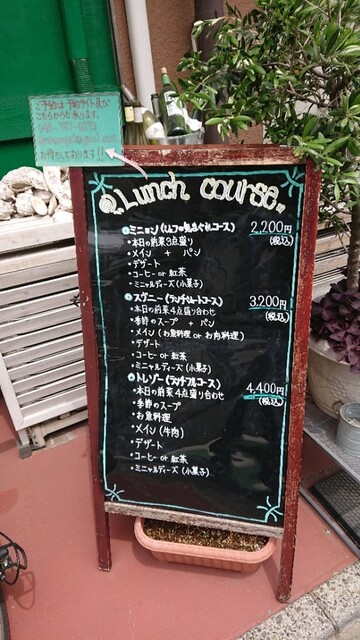 ご予約は予約サイト及び
こちらからも承ります。
お待ちしております!!
Lunch course
ミニョン(シェフの気まぐれコース) 2,200円
(税込)
・本日の前菜3点盛り
・メイン + パン
・デザート
・コーヒー or 紅茶
・ミニャルディーズ(小菓子)
3,200円
(税込)
・本日の前菜4点盛り合わせ
・季節のスープ + パン
・メイン(お魚料理 or お肉料理)
・デザート
・コーヒー or 紅茶
・ミニャルディーズ(小菓子)
トレゾー 4,400円
(税込)
・本日の前菜4点盛り合わせ
・季節のスープ
・お魚料理
・メイン(牛肉)
・デザート
・コーヒー or 紅茶
・ミニャルディーズ(小菓子)